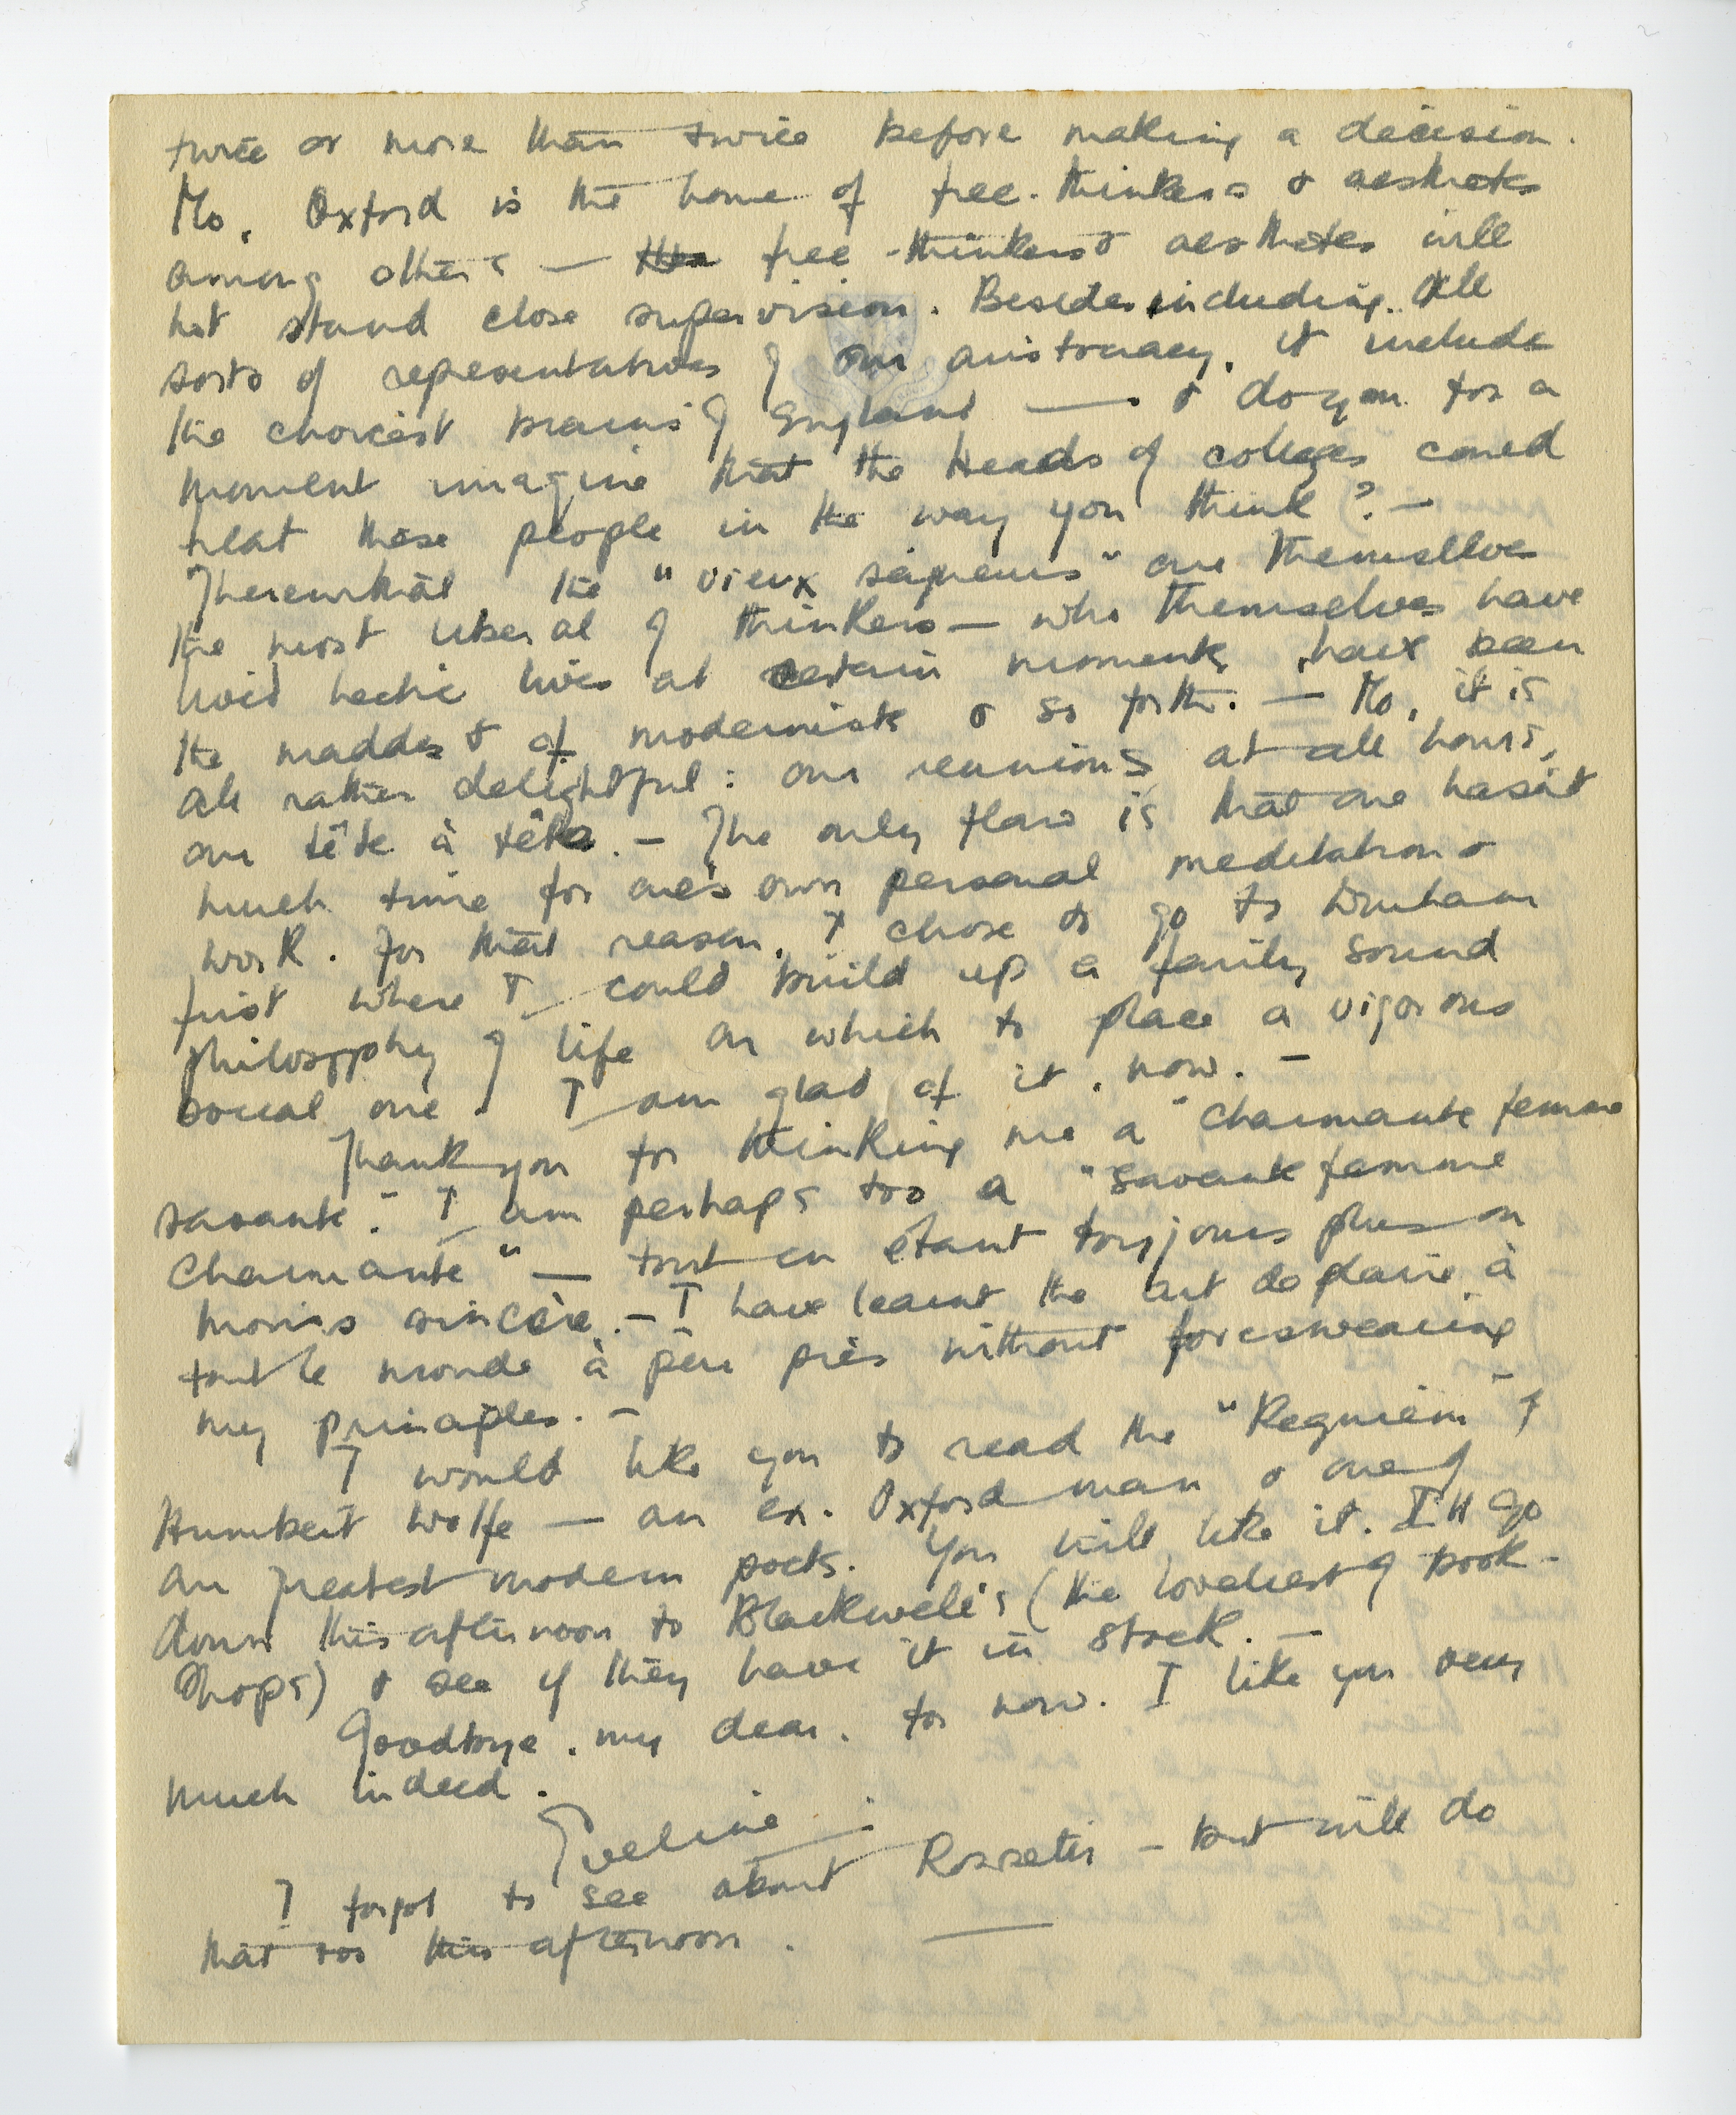 twice or more than twice before making a decision.
No, Oxford is the home of free-thinkers & aesthetes
among others — free-thinkers & aesthetes will
not stand close supervision. Besides including all
sorts of representatives of our aristocracy, it include
the choicest brains of England — & do you for a
moment imagine that the Heads of colleges coued
treat these people in the way you think? —
Therewithal the "vieux seigneurs" are themsellves
the most liberal of thinkers — who themselves have
lived hectic lives at certain moments, have been
the maddest of modernists & so forth. — No, it is
all rather delightful: our reunions at all hours,
our tête à tête. — The only flaw is that one hasn't
much time for one's own personal meditation &
work. For that reason, I chose to go to Durham
first where I could build up a fairly sound
philosophy of life on which to place a vigorous
social one. I am glad of it, now. —
Thank you for thinking me a "charmante femme
savante." I am perhaps too a "savante femme
charmante" — tout en étant toujours plus ou
moins sincère. — I have learnt the art de plaire à
tout le monde à peu près without foreswearing
my principles. —
I would like you to read the "Requiem" of
Humbert Wolfe — an ex. Oxford man & one of
our greatest modern poets. You will like it. I'll go
down this afternoon to Blackwell's (the loveliest of book-
shops) & see if they have it in stock. —
Goodbye, my dear, for now. I like you very
much indeed.
Eveline
I forgot to see about Rossetti — but will do
that too this afternoon.